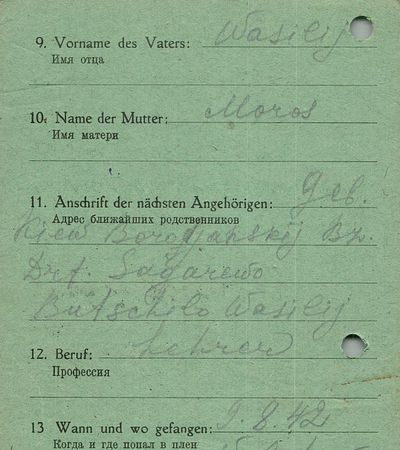 9. Vorname des Vaters: Wasilij
Имя отца
10. Name der Mutter: Moros
Имя матери
11. Anschrift der nächsten Angehörigen: Geb.
Адрес ближайших родственников
Kiew Borodjanskij Bz.
Drf. Sagarewo
Butschilo Wasilij
12. Beruf: Lehrer
Профессия
13 Wann und wo gefangen: 9.8.42
Когда и где попал в плен